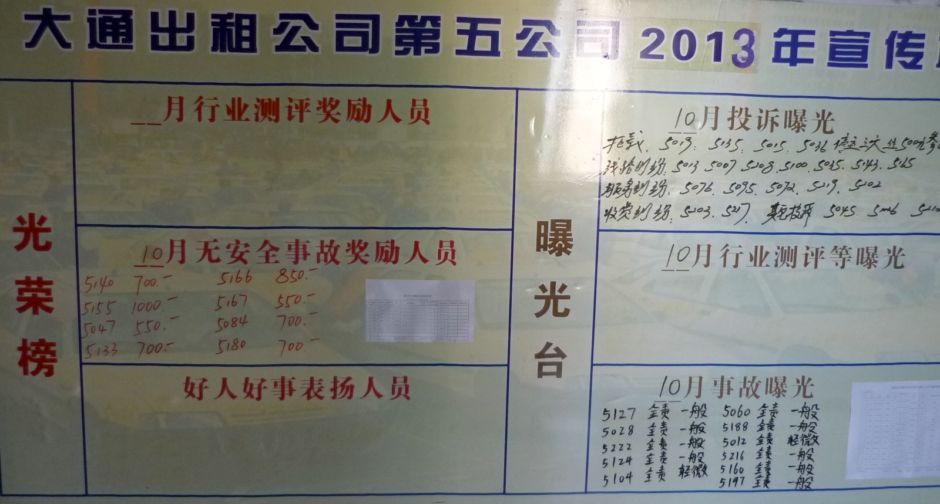 大通出租公司第五公司2013年宣传
光荣榜
__月行业测评奖励人员
10月无安全事故奖励人员
5140 700.- 5166 850.-
5155 1000- 5167 550.-
5047 550.- 5084 700.-
5133 700.- 5180 700.-
好人好事表扬人员
曝光台
10月投诉曝光
拒载、5019、5135、5015、5036
纠纷、5013 5007 5208 5100 5035 5143
纠纷、5076、5095、5072、5219、5202
收费纠纷、5203、5217、 5045
10月行业测评等曝光
10月事故曝光
5127 全责 一般 5060 全责 一般
5028 全责 一般 5188 全责 一般
5222 全责 一般 5012 全责 轻微
5124 全责 一般 5216 全责 一般
5104 全责 轻微 5160 全责 一般
5197 全责 一般